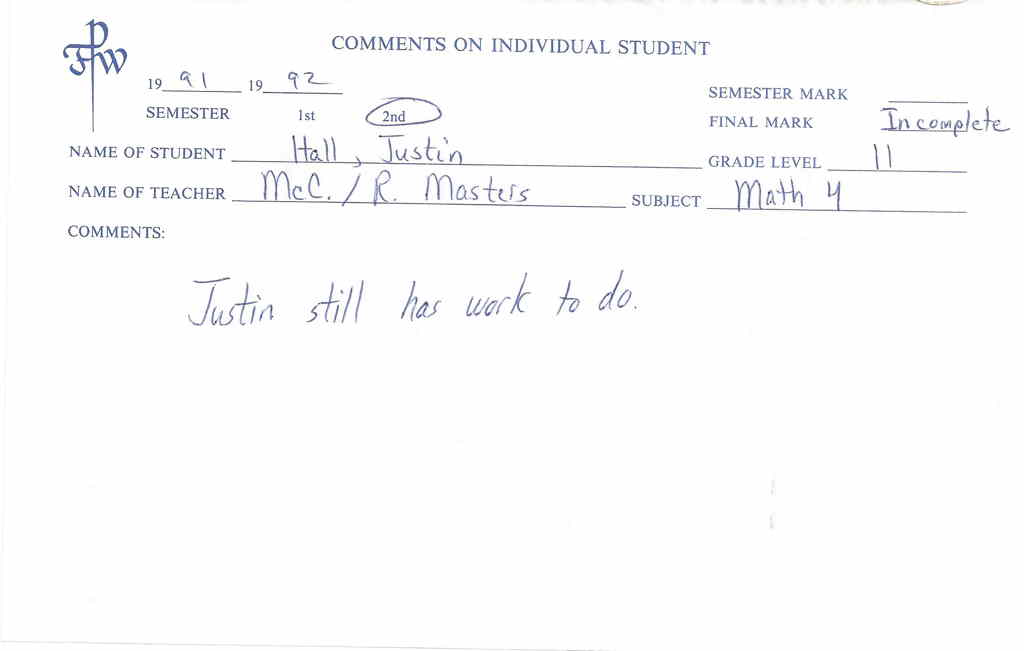 FPW
COMMENTS ON INDIVIDUAL STUDENT
1991 1992
SEMESTER 1st 2nd
SEMESTER MARK
FINAL MARK Incomplete
NAME OF STUDENT Hall, Justin GRADE LEVEL 11
NAME OF TEACHER McC. / R. Masters SUBJECT Math 4
COMMENTS:
Justin still has work to do.